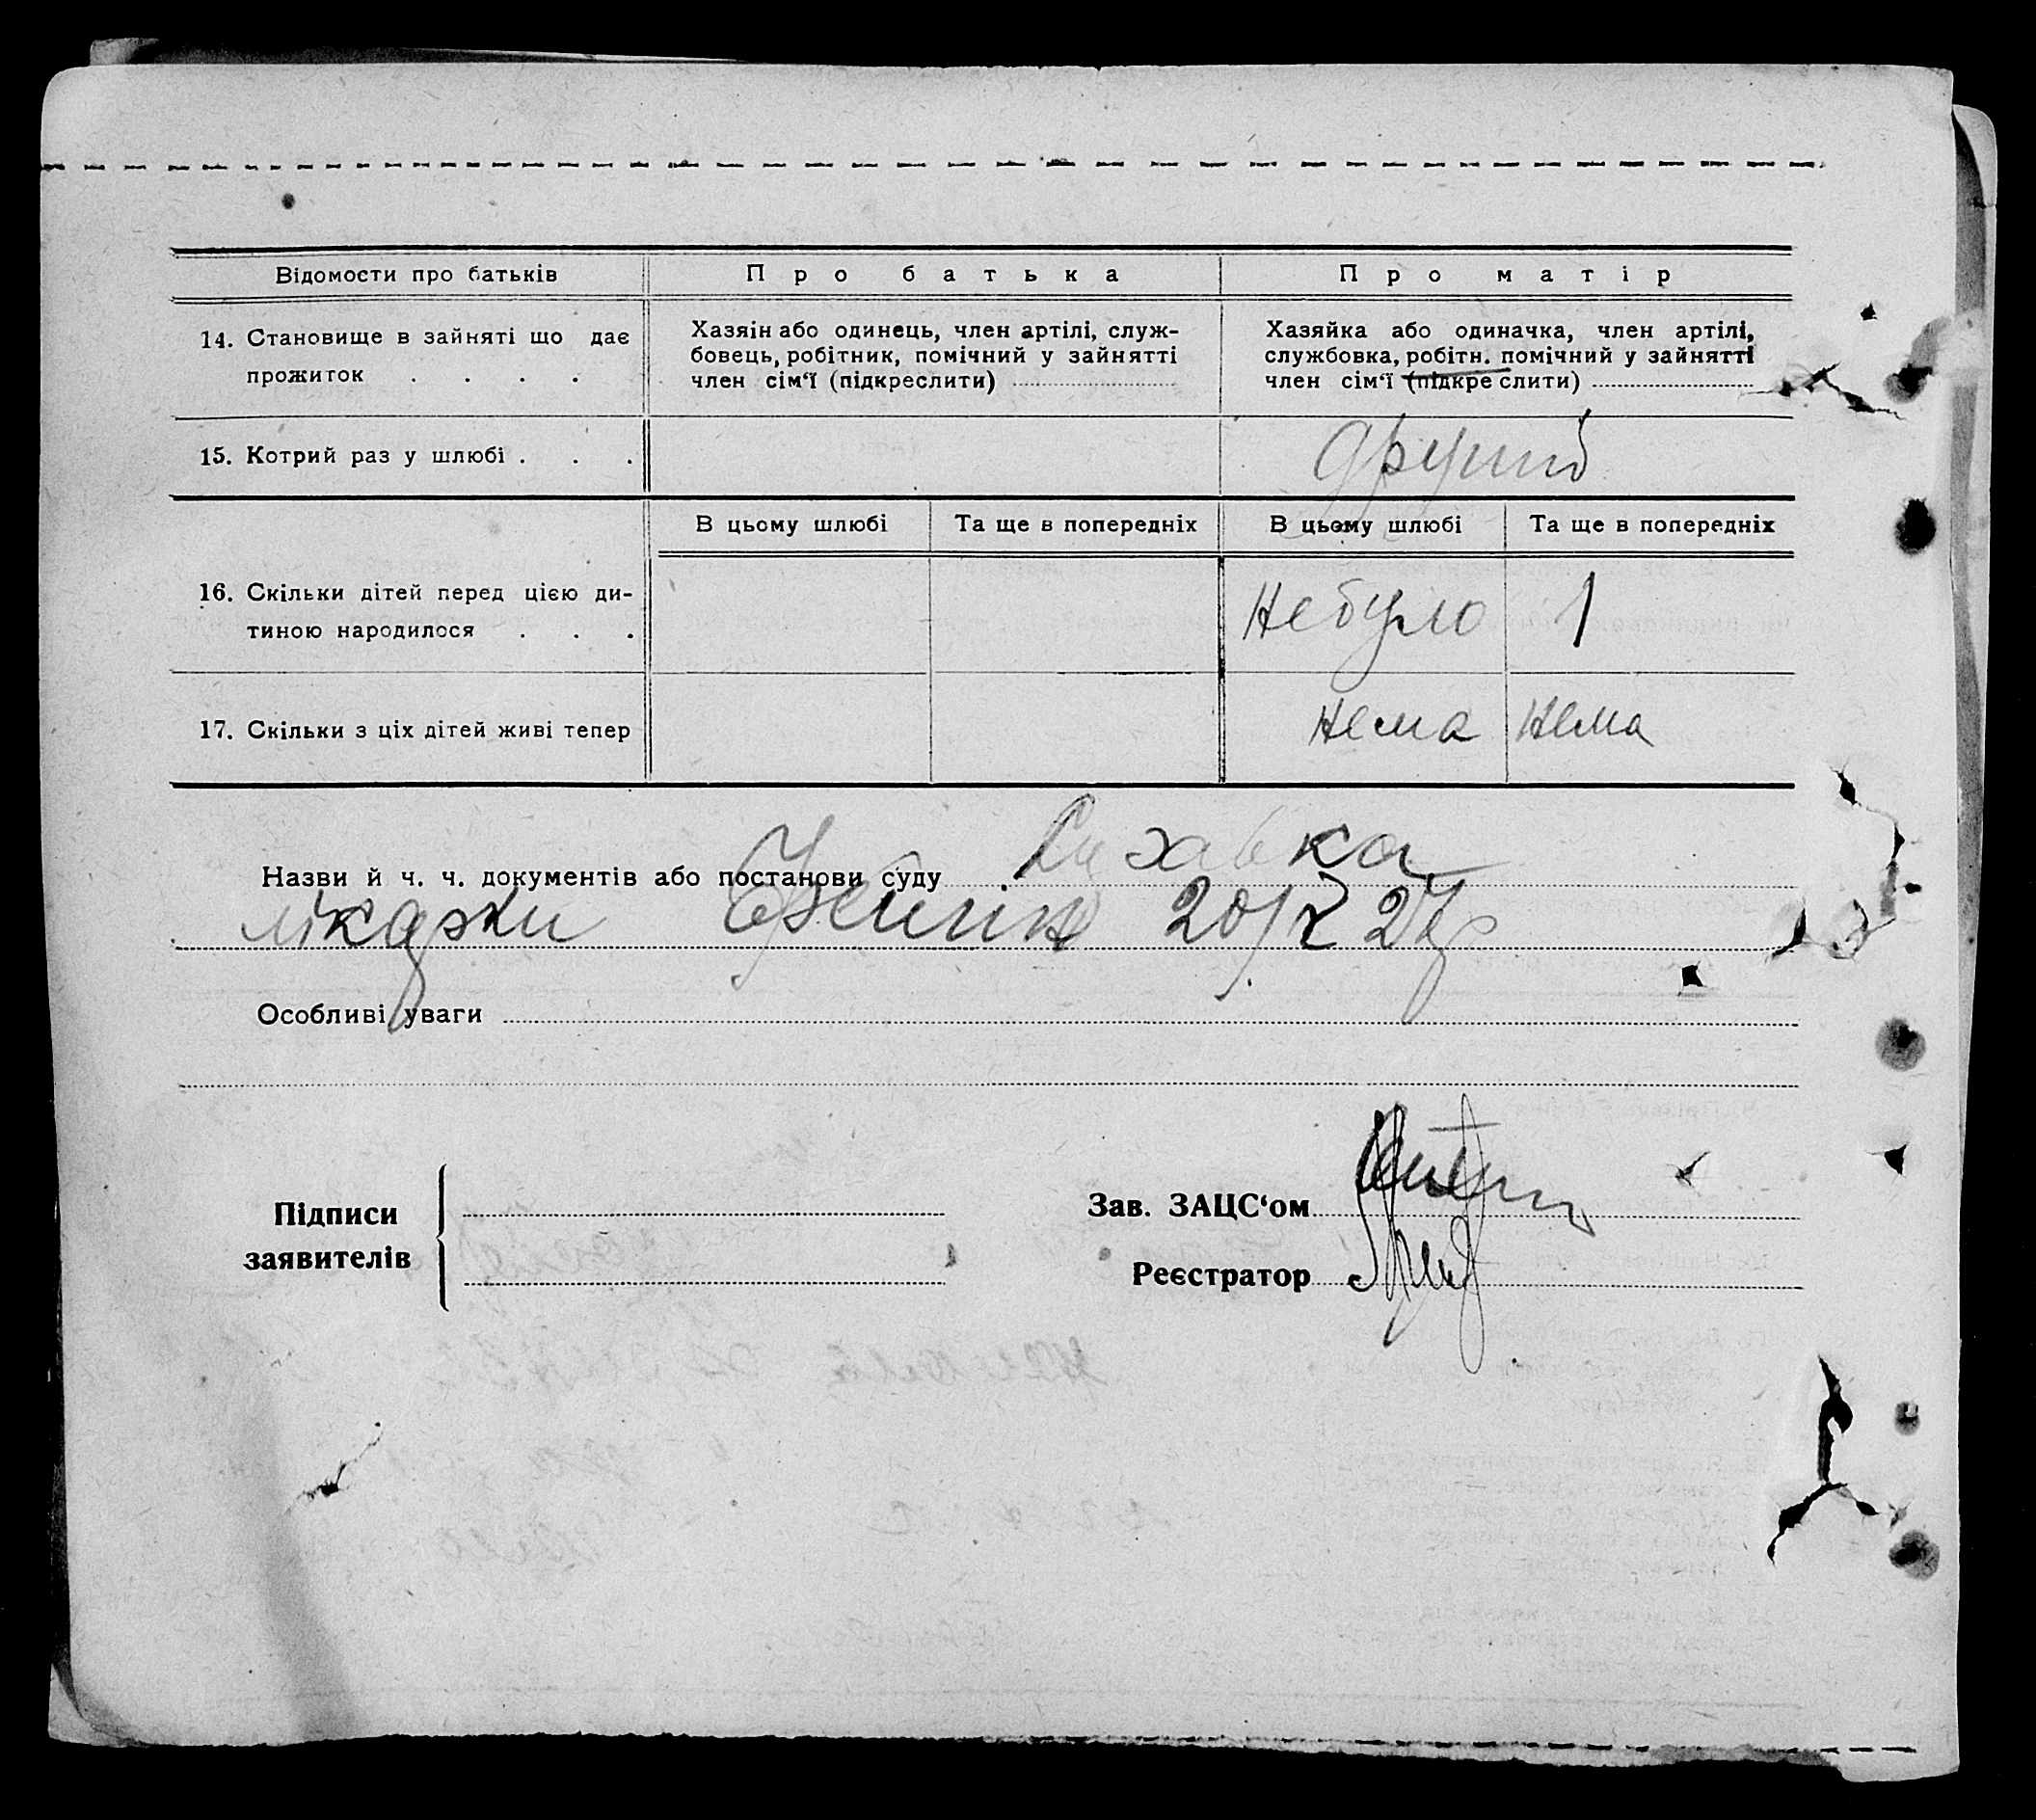 Відомости про батьків
Про батька
Про матір
14. Становище в зайняті що дає
прожиток . . . .
Хазяін або одинець, член артілі, служ-
бовець, робітник, помічний у зайнятті
член сім‘ї (підкреслити)
Хазяйка або одиначка, член артілі,
службовка, робітн. помічний у зайнятті
член сім‘ї (підкре слити)
15. Котрий раз у шлюбі . . .
другий
В цьому шлюбі
Та ще в попередніх
В цьому шлюбі
Та ще в попередніх
16. Скільки дітей перед цією ди-
тиною народилося . . .
Небуло
1
17. Скільки з ціх дітей живі тепер
Нема
Нема
Назви й ч. ч. документів або постанови суду
лікарки
Особливі уваги
Підписи
заявителів
Зав. ЗАЦС‘ом
Реєстратор